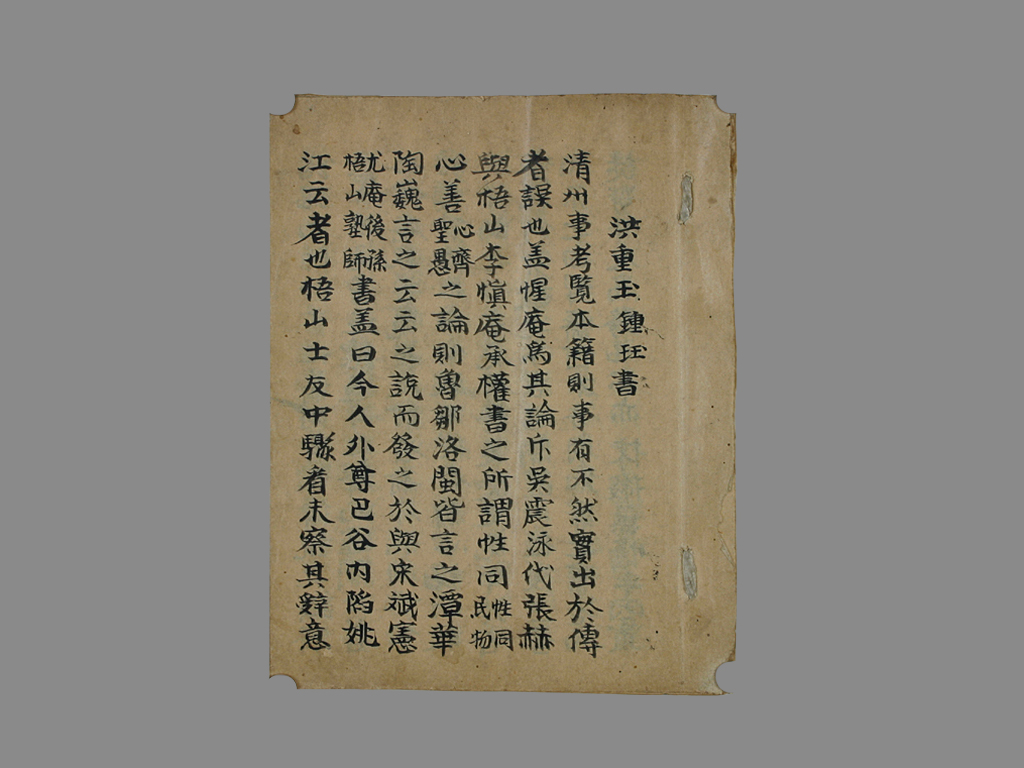 洪重玉鍾珏書
清州事考覧本籍則事有不然實出於傳
者誤也盖惺庵爲其論斥吳震泳代張赫
與梧山李愼庵承權書之所謂性同性同民物
心善心齊聖愚之論則魯鄒洛閩皆言之潭華
陶巍言之云云之說而發之於與宋斌憲
尤庵後孫梧山塾師書盖曰今人外尊巴谷内陷姚
江云者也梧山士友中驟看未察其辭意